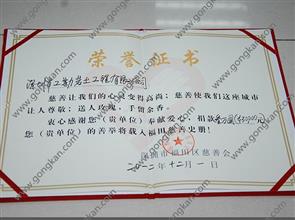 荣誉证书
深圳市工勘岩土工程有限公司
慈善让我们的心灵变得高尚；慈善使我们这座城市
让人尊敬；送人玫瑰，手留余香。
衷心感谢您（贵单位）奉献爱心，捐款
您（贵单位）的善举将载入福田慈善史册！
深圳市福田区慈善会
二〇一二年十二月一日
www.gongkan.com